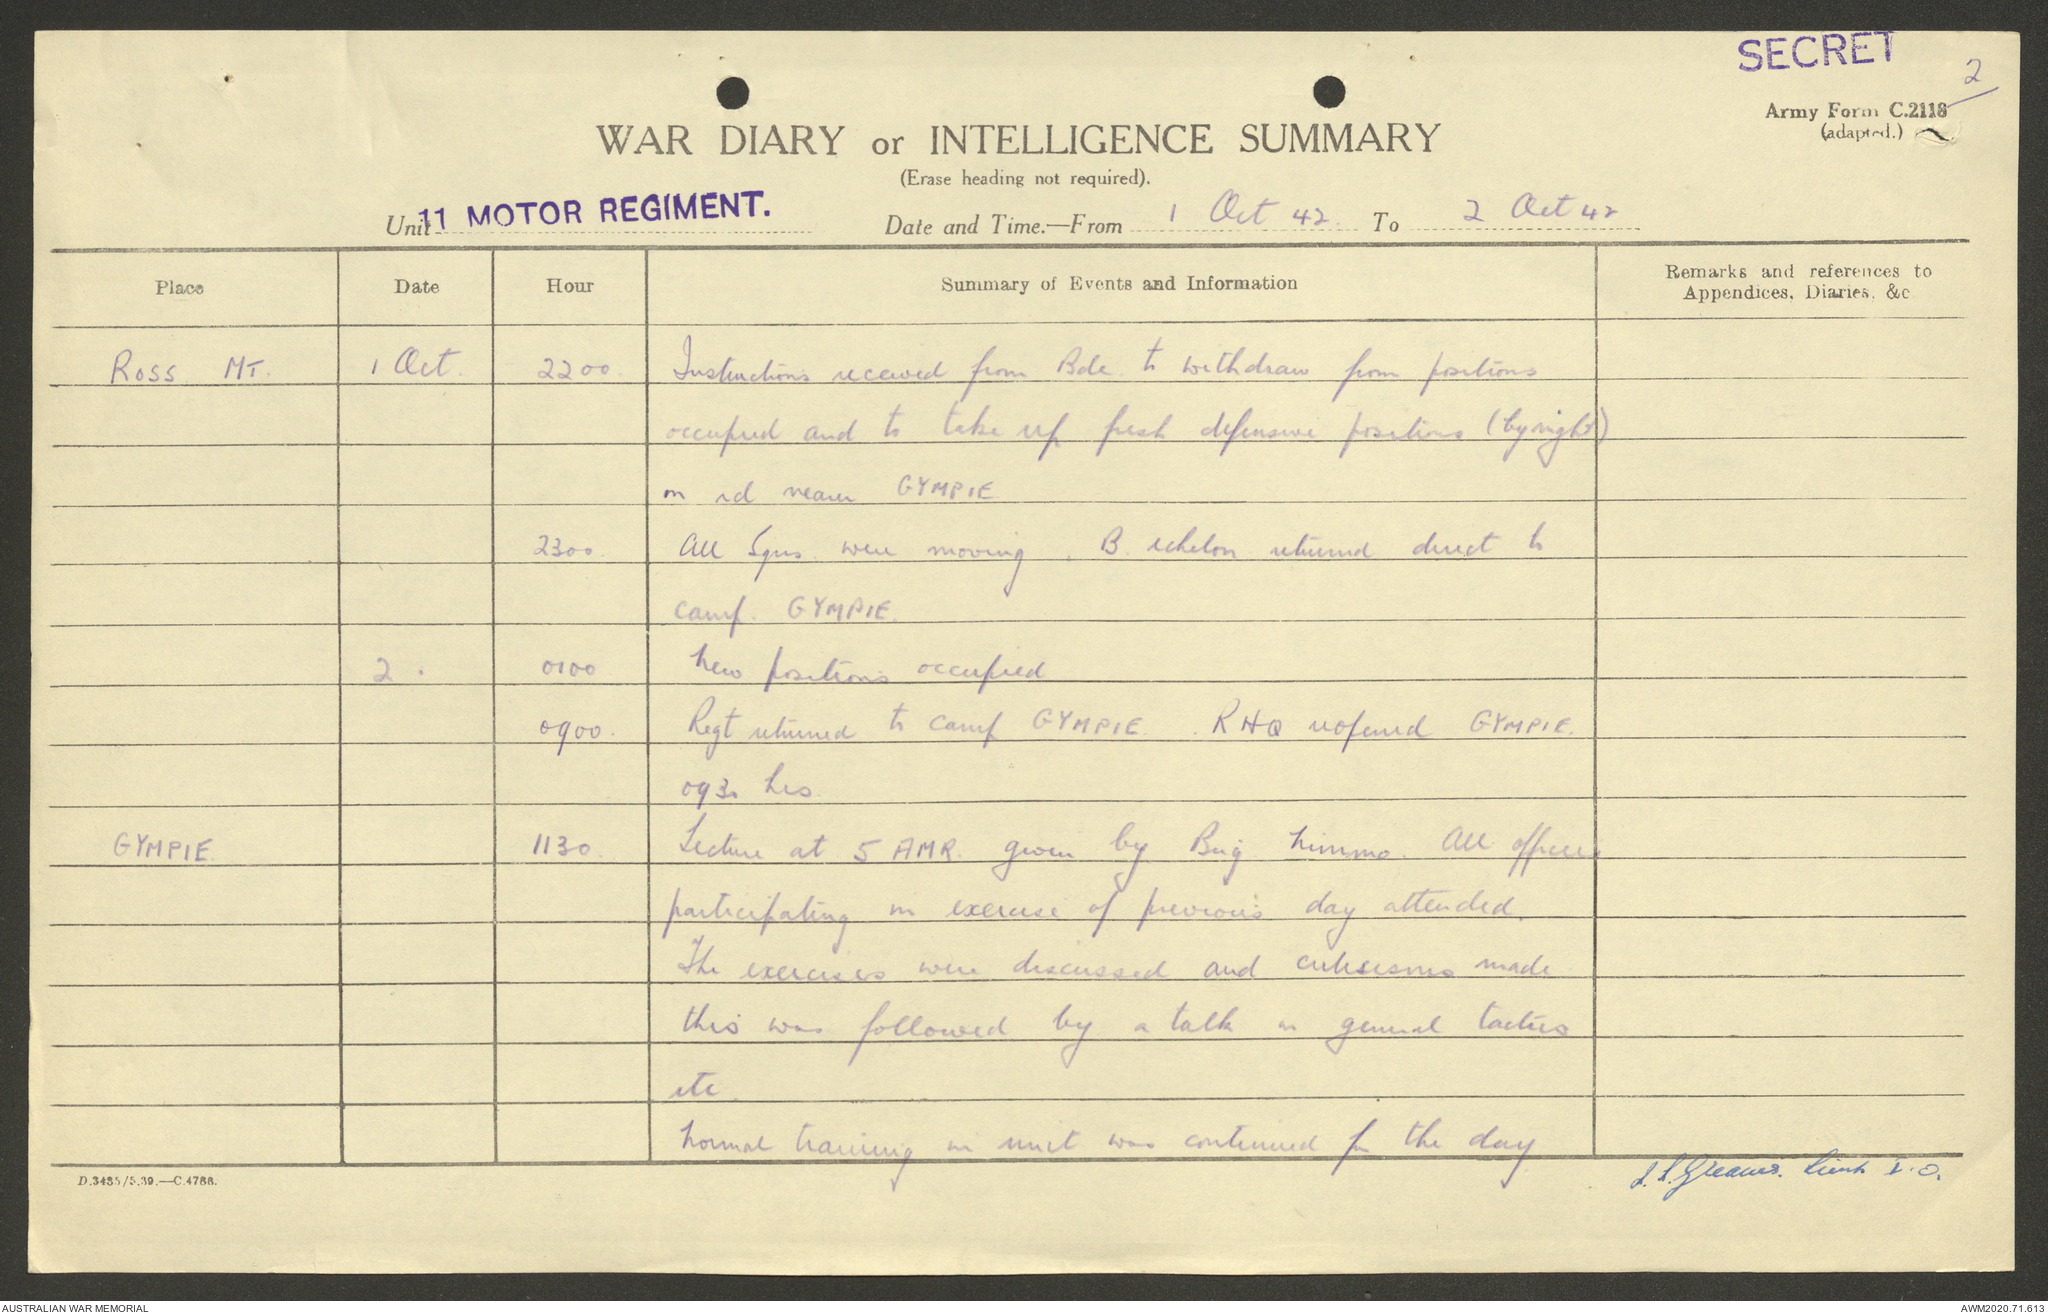 SECRET
2
Army Form C.2118
(adapted.)
WAR DIARY or INTELLIGENCE SUMMARY
(Erase heading not required).
Unit 11 MOTOR REGIMENT. Date and Time.—From 1 Oct 42. To 2 Oct 42
Place Date Hour Summary of Events and Information Remarks and references to
Appendices, Diaries, &c.
ROSS MT. 1 Oct. 2200 Instructions received from Bde to withdraw from positions
occupied and to take up fresh defensive positions (by night)
on rd nearer GYMPIE
2300. All Sqns. were moving. B echelon returned direct to
camp. GYMPIE.
2. 0100 New positions occupied
0900. Regt returned to camp GYMPIE. RHQ reopened GYMPIE.
0930 hrs.
GYMPIE. 1130. Lecture at 5 AMR. given by Brig Nimmo. All officers
participating in exercise of previous day attended.
The exercises were discussed and criticisms made
this was followed by a talk on general tactics
etc.
Normal training in unit was continued for the day
D.3485/5.39.—C.4788.
Greaves. Lieut I.O.
AUSTRALIAN WAR MEMORIAL
AWM2020.71.613